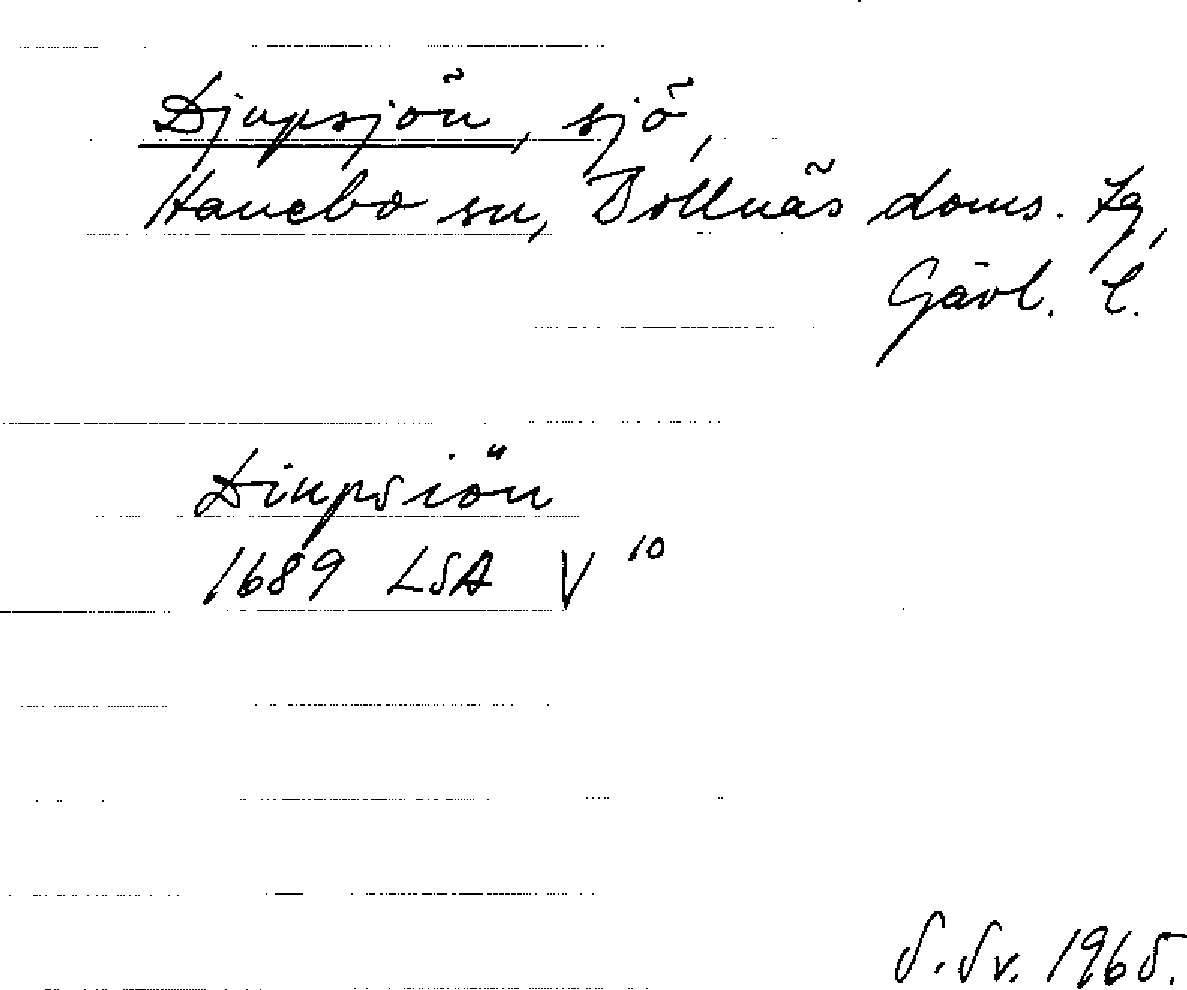 Djupsjön, sjö,
Hanebo sn, Bollnäs doms. tg,
Gävl. l.
Diupsiön
1689 LSA V 10
S. Sv. 1965.